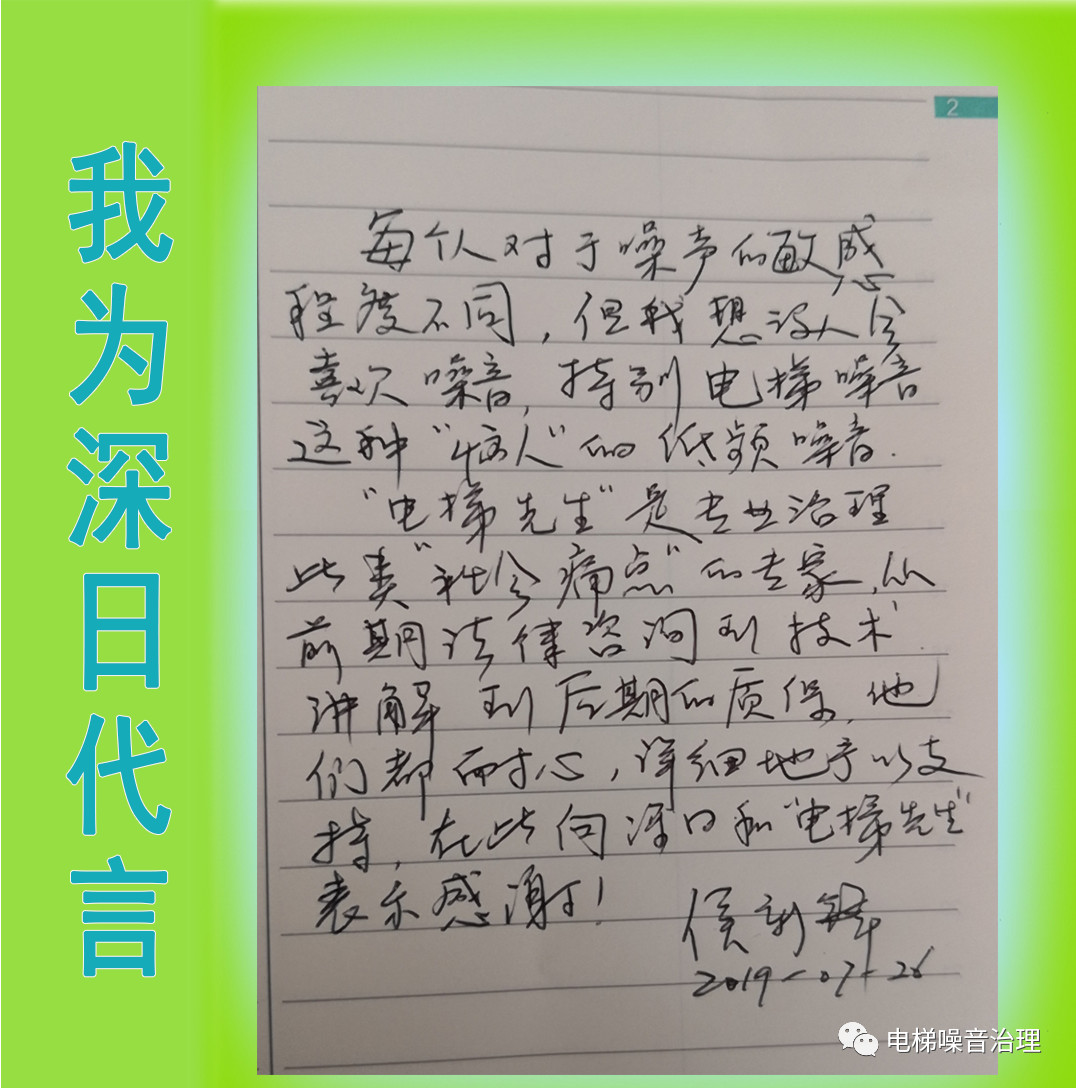 我为深日代言
2
每个人对于噪声的敏感
程度不同,但我想没人会
喜欢噪音,特别电梯噪音
这种“病人”的低频噪音.
“电梯先生”是专业治理
此类“社会痛点”的专家,从
前期法律咨询到技术
讲解到后期的质保,他
们都耐心,详细地予以支
持,在此向深日和“电梯先生”
表示感谢!
侯新
2019-07-26
电梯噪音治理